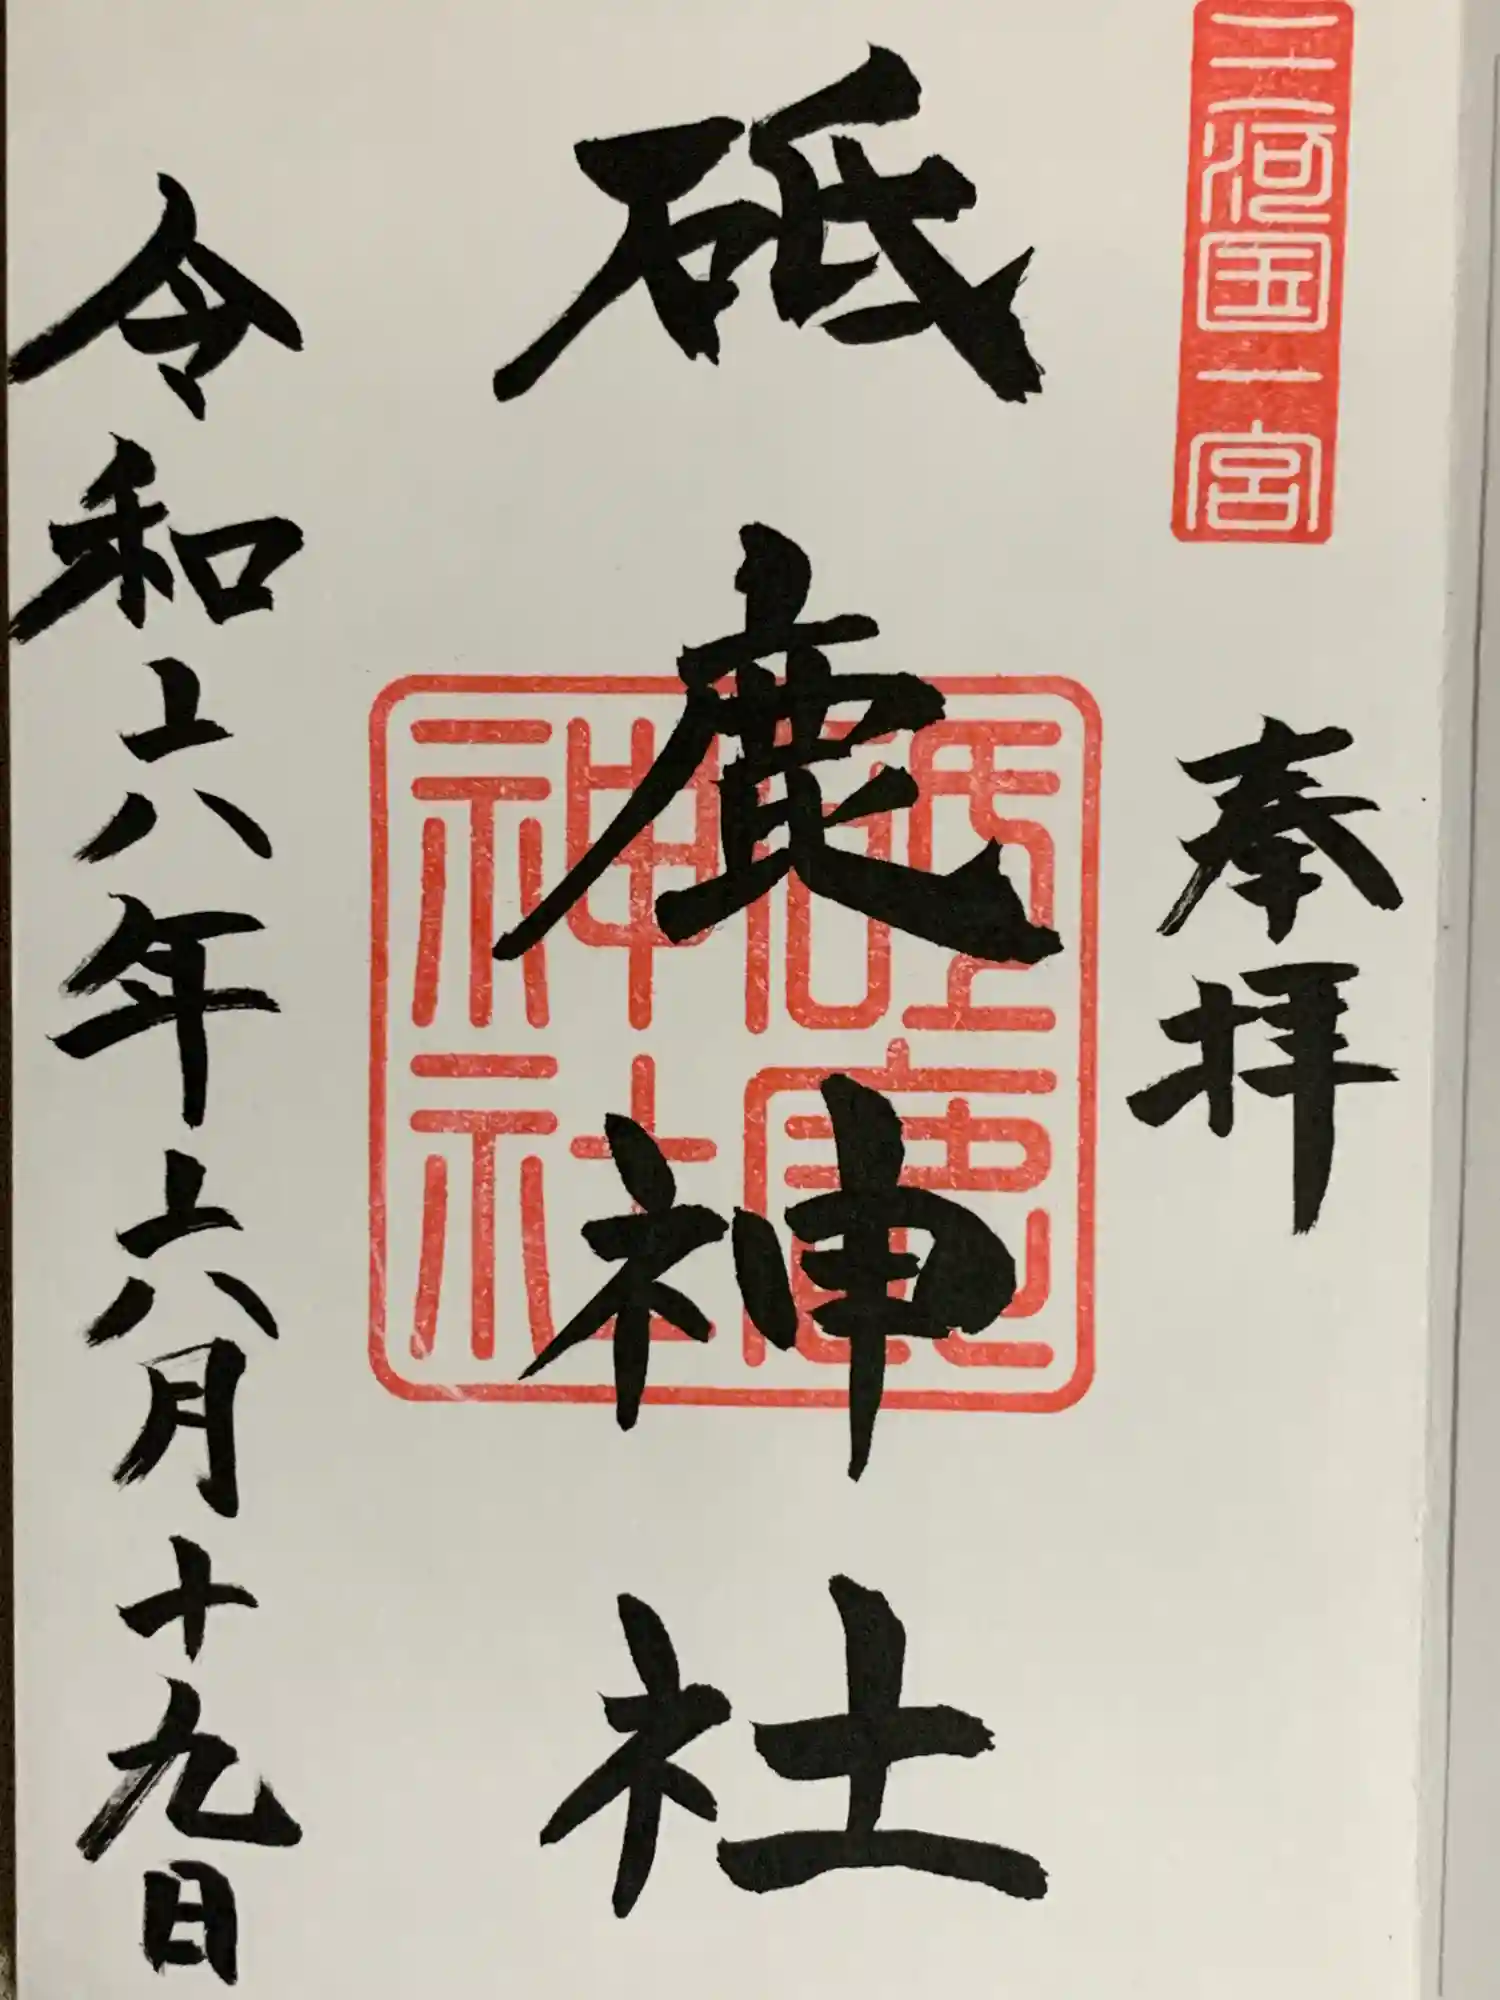 三河国一宮
奉拝
砥鹿神社
砥鹿
神社
令和六年六月十九日